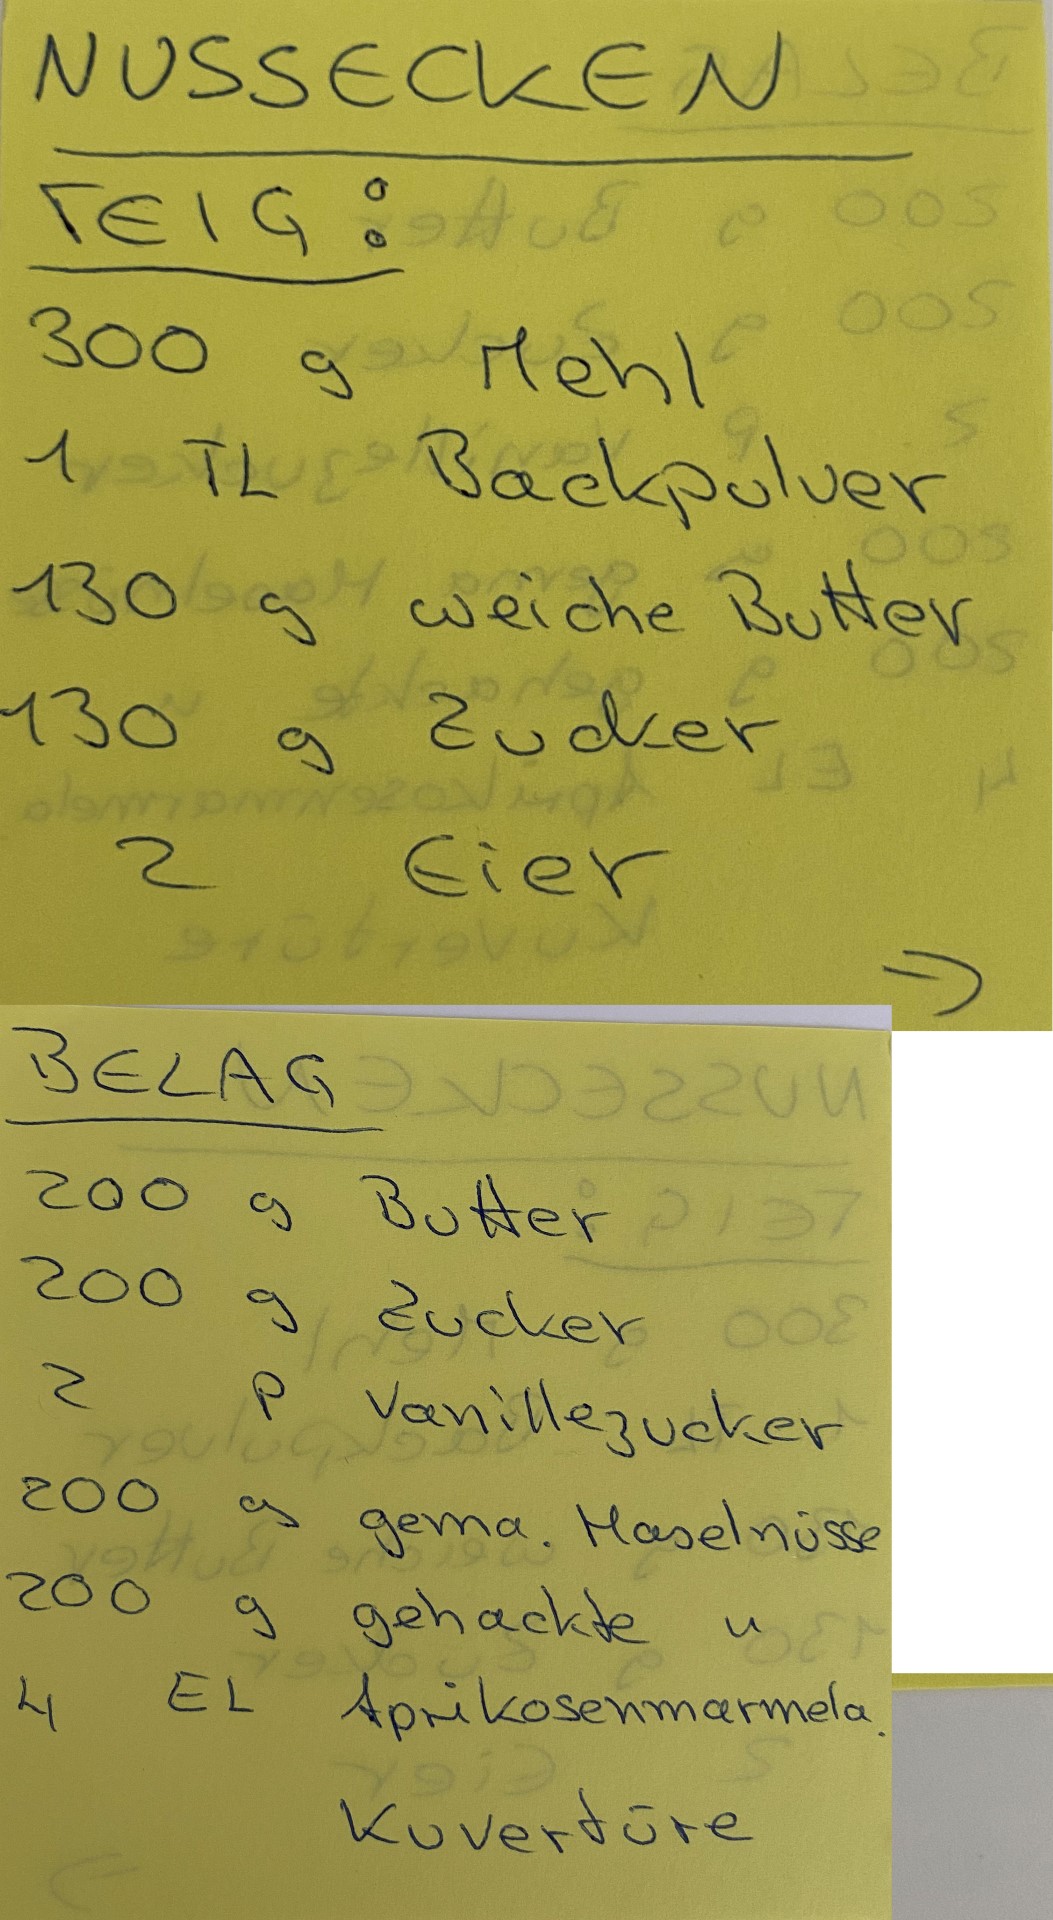 NUSSECKEN
TEIG:
300 g Mehl
1 TL Backpulver
130 g weiche Butter
130 g Zucker
2 Eier
→
BELAG
200 g Butter
200 g Zucker
2 P Vanillezucker
200 g gema. Haselnüsse
200 g gehackte "
4 EL Aprikosenmarmela.
Kuvertüre